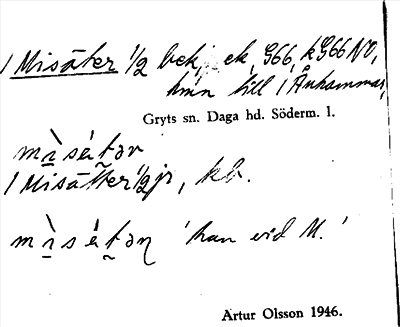 1 Misäter 1/2 bek, ek, G66, kG66 NO,
hmn till 1 Ånhammar,
Gryts sn. Daga hd. Söderm. l.
mìsétər
1 Misätter 1/2 jr, kb.
mìsétəɳ 'han vid M.'
Artur Olsson 1946.